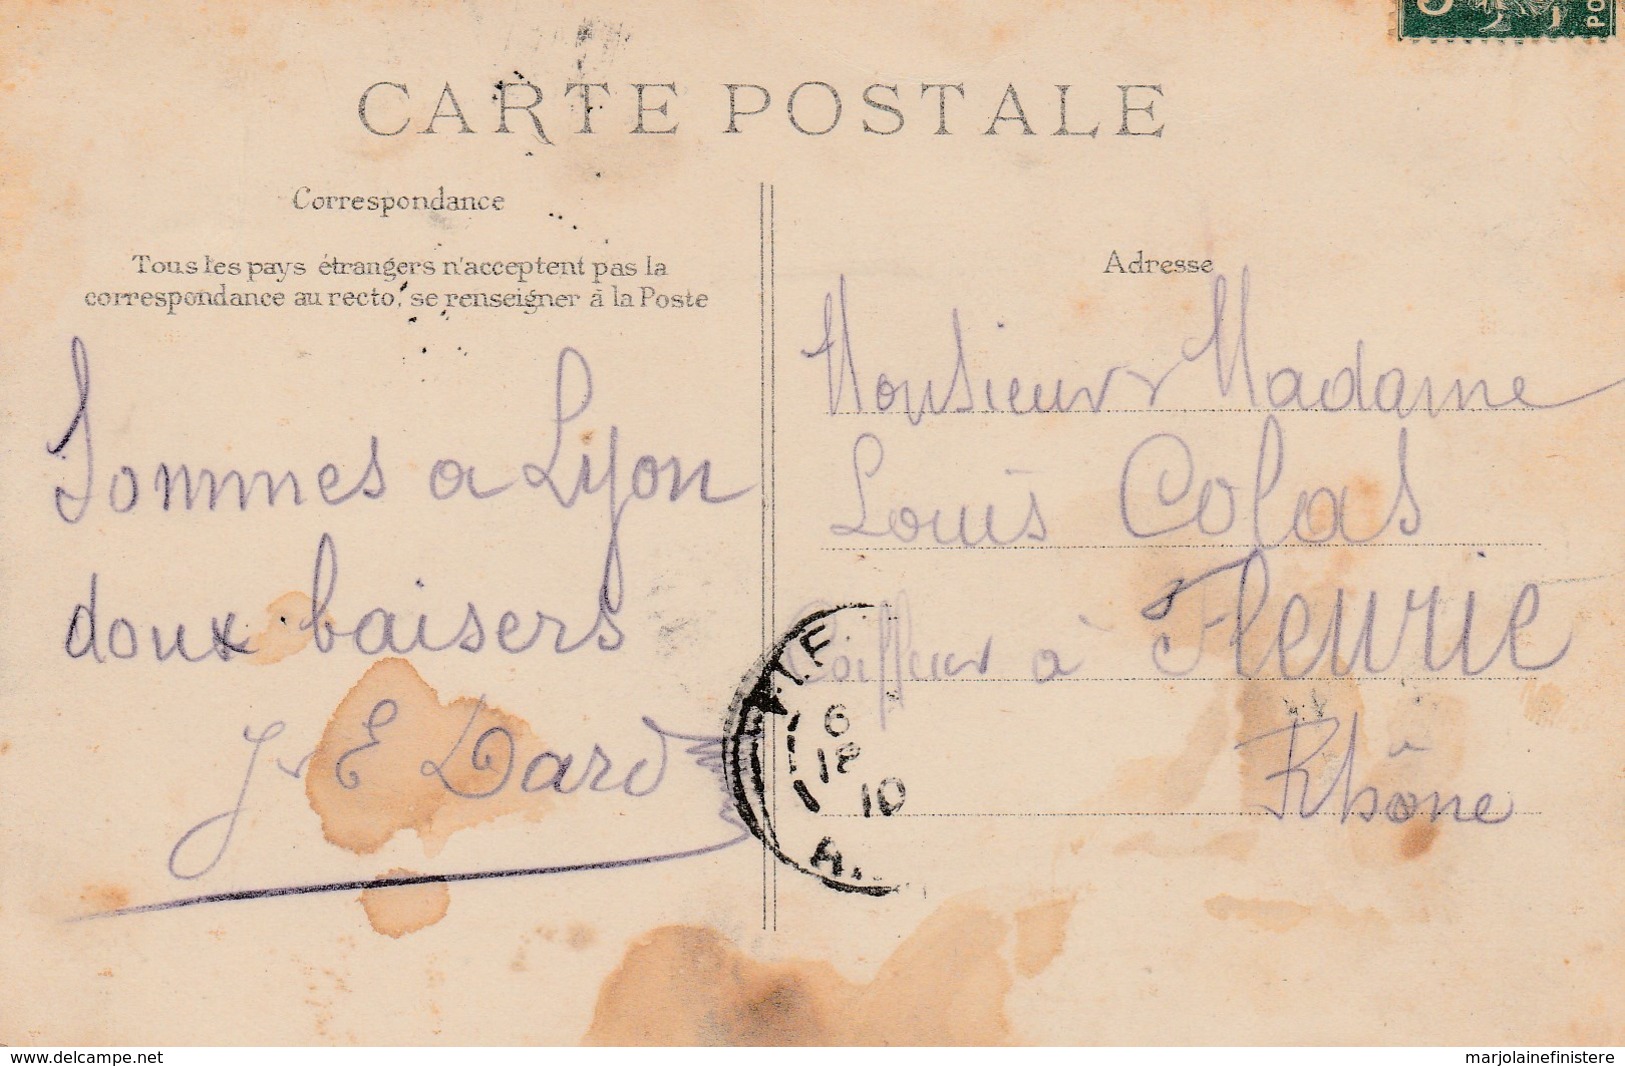 CARTE POSTALE
Correspondance
Tous les pays étrangers n'acceptent pas la
correspondance au recto, se renseigner à la Poste
Sommes a Lyon
doux baisers
J E Dard
Adresse
Monsieur & Madame
Louis Colas
Coiffeur à Fleurie
Rhône
6
12
10
A.
PO
www.delcampe.net
marjolainefinistere